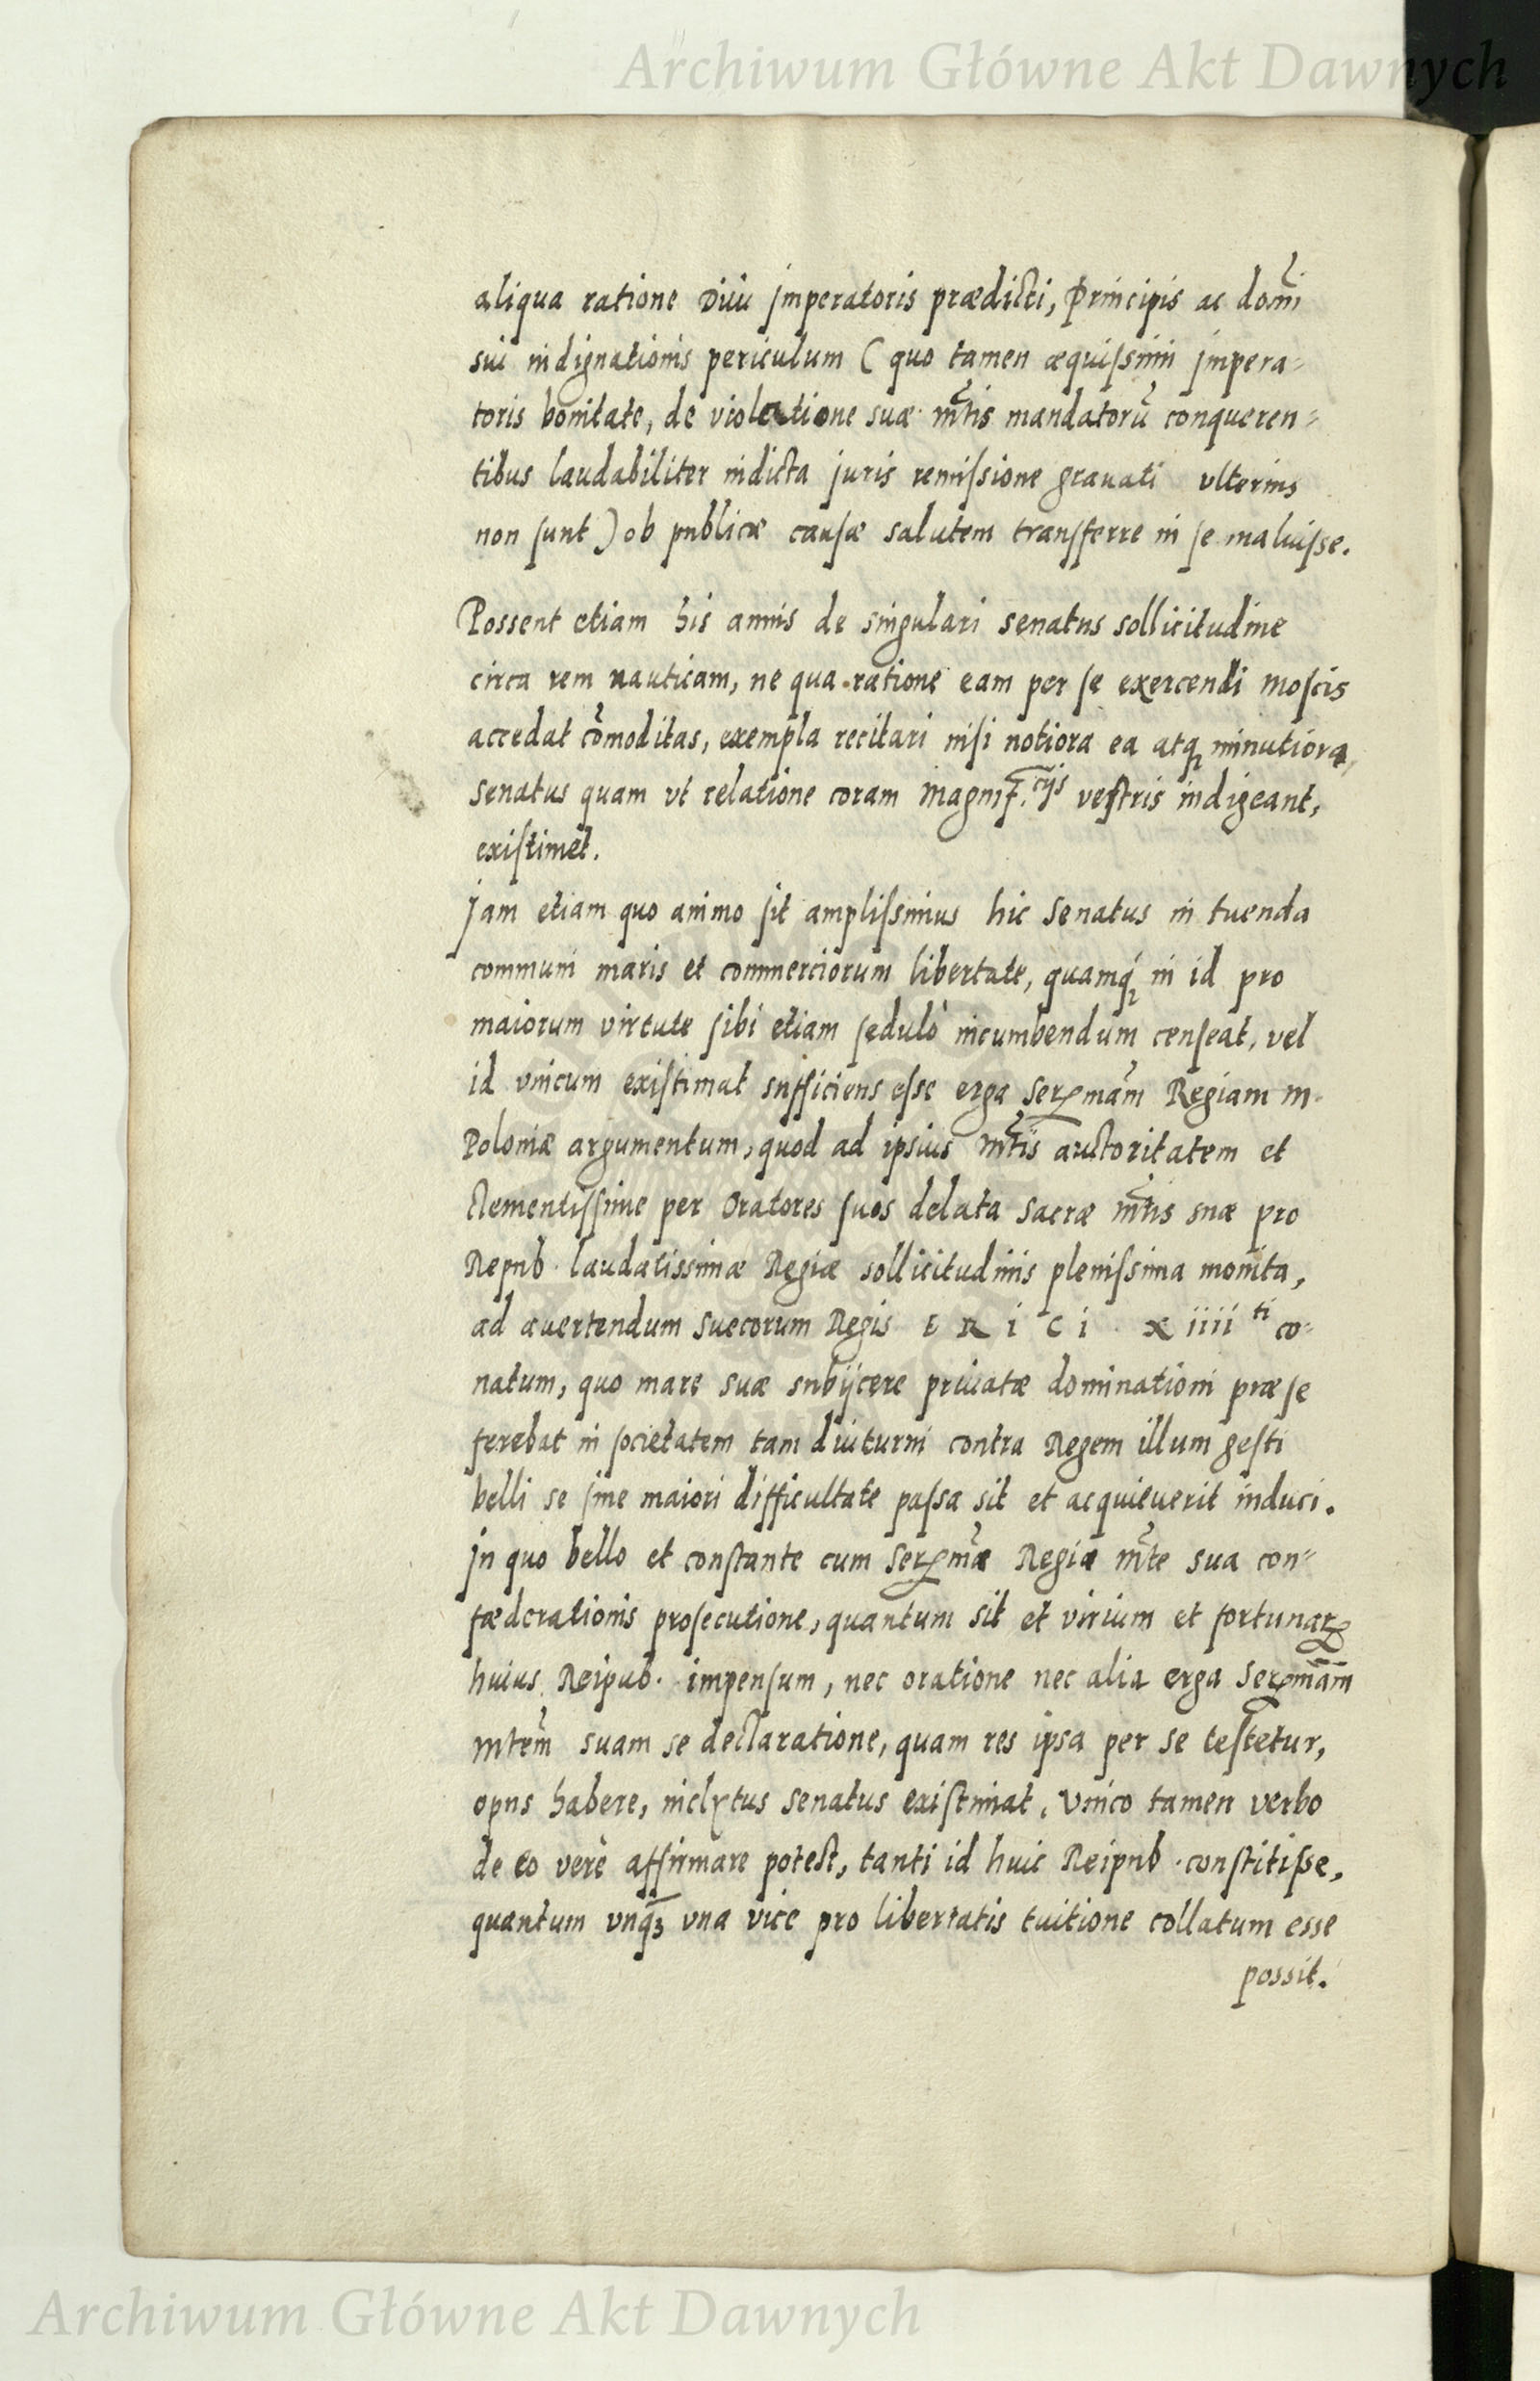 Archiwum Główne Akt Dawnych
aliqua ratione Diui jmperatoris prædicti, Principis ac domĩ
sui indignationis periculum ( quo tamen æquiſsimi jmpera-
toris bonitate, de violatione suæ m̃tis mandatorũ conqueren-
tibus laudabiliter indicta juris remiſsione grauati vlterius
non ſunt ) ob publicæ cauſæ salutem tranſferre in ſe maluiſse.
Possent etiam his annis de singulari senatus sollicitudine
circa rem nauticam, ne qua ratione eam per ſe exercendi Moſcis
accedat cõmoditas, exempla recitari niſi notiora ea atq₂ minutiora
senatus quam vt relatione coram Magnif.cijs veſtris indigeant,
exiſtimet.
Jam etiam quo animo ſit ampliſsimus hic senatus in tuenda
communi maris et commerciorum libertate, quamq́₂ in id pro
maiorum virtute ſibi etiam ſedulò incumbendum cenſeat, vel
id vnicum exiſtimat sufficiens eſse erga serꝫmãm Regiam M.
Poloniæ argumentum, quod ad ipsius M̃tis auctoritatem et
clementiſſime per Oratores ſuos delata sacræ M̃tis suæ pro
Repub. laudatissimæ Regiæ sollicitudinis pleniſsima monita,
ad auertendum Suecorum Regis E R i C i X iiii ti co-
natum, quo mare suæ subijcere priuatæ dominationi præ ſe
ferebat in ſocietatem tam diuturni contra Regem illum geſti
belli se ſine maiori difficultate paſsa sit et acquieuerit induci.
Jn quo bello et conſtante cum Serꝫmã Regia m̃te sua con-
fœderationis proſecutione, quantum sit et virium et fortunarꝫ
huius Reipub. impenſum, nec oratione nec alia erga Serꝫmãm
Mtem̃ suam se declaratione, quam res ipsa per se teſtetur,
opus habere, inclytus senatus exiſtimat, Vnico tamen verbo
de eo verè affirmare poteſt, tanti id huic Reipub. conſtitiſse,
quantum vnq̃ꝫ vna vice pro libertatis tuitione collatum esse
possit.
Archiwum Główne Akt Dawnych